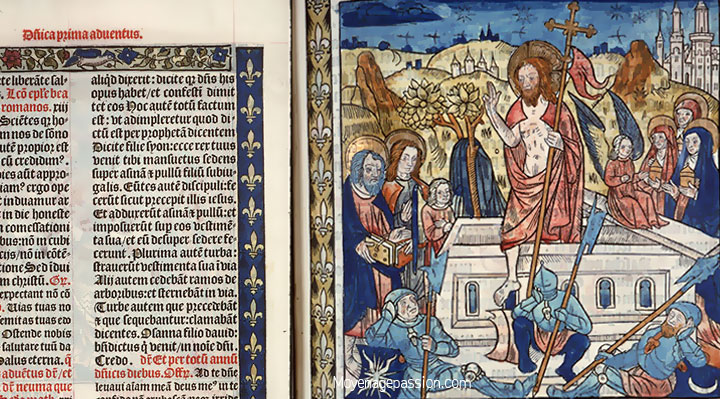 Dñica prima adventus.
te liberãte sal-
Lcõ epľe bea
romanos. xiij
Sciẽtes qꝛ ho-
m nos de sõno
autẽ ꝓpioꝛ est
cũ credidimꝰ.
autẽ appꝛo-
iamꝰ ergo ope
t induamur ar
t in die honeste
n comessationi
ibus: nõ in cubi
icijs/ nõ in cõtẽ-
tatione Sed idui
m christũ.
expectant nõ cõ
Uias tuas no
semitas tuas edo
Ostende nobis
t salutare tuũ da
Salus eterna.
neuma que
aliqd dixerit: dicite qꝛ dñs his
opus habet/ et confesti dimit
tet eos Hoc autẽ totũ factum
est: vt adimpleretur quod di-
ctũ est per ꝓphetã dicentem
Dicite filie syon: ecce rex tuus
venit tibi mansuetus sedens
super asinã ⁊ pullũ filiũ subiu
galis. Eũtes autẽ discipuli: fe
cerũt sicut ꝑcepit illis iesus.
Et adduxerũt asinã ⁊ pullũ: et
imposuerũt sup eos vestimẽ-
ta sua/ et eũ desuper sedere fe
cerunt. Plurima autẽ turba:
strauerũt vestimenta sua ĩ via
Alij autem cedebãt ramos de
arboribus: et sternebãt in via.
Turbe autem que precedebãt
⁊ que sequebantur: clamabãt
dicentes. Osanna filio dauid:
bñdictus q̃ venit/ in noĩe dñi.
Credo. Et per totũ annũ
dñicis diebus. Off.
Ad te dñe
leuaui aĩam meã deus meꝰ in te
Moyenagepassion.com